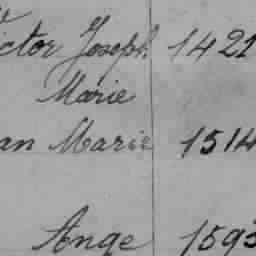 ctor Joseph 1421
Marie
an Marie 1514
Ange 1593